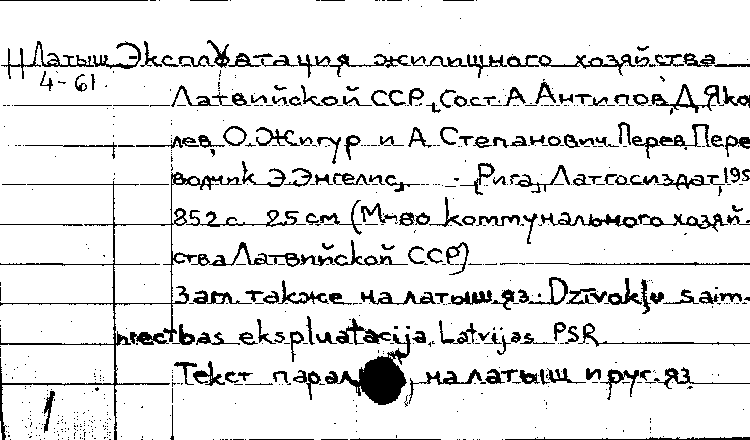 Н Латыш Эксплуатация жилищного хозяйства
4-61
Латвийской ССР, [Сост. А Антипов, Д. Яко
лев, О. Жигур и А. Степанович. Перев. Пере
водчик Э. Энгелис]. - [Рига], Латгосиздат, 195
852 с. 25 см (М-во коммунального хозяй-
ства Латвийской ССР)
Заг. также на латыш. яз.: Dzīvokļu saim-
niecības ekspluatacija Latvijas PSR.
Текст на латыш и рус. яз
1